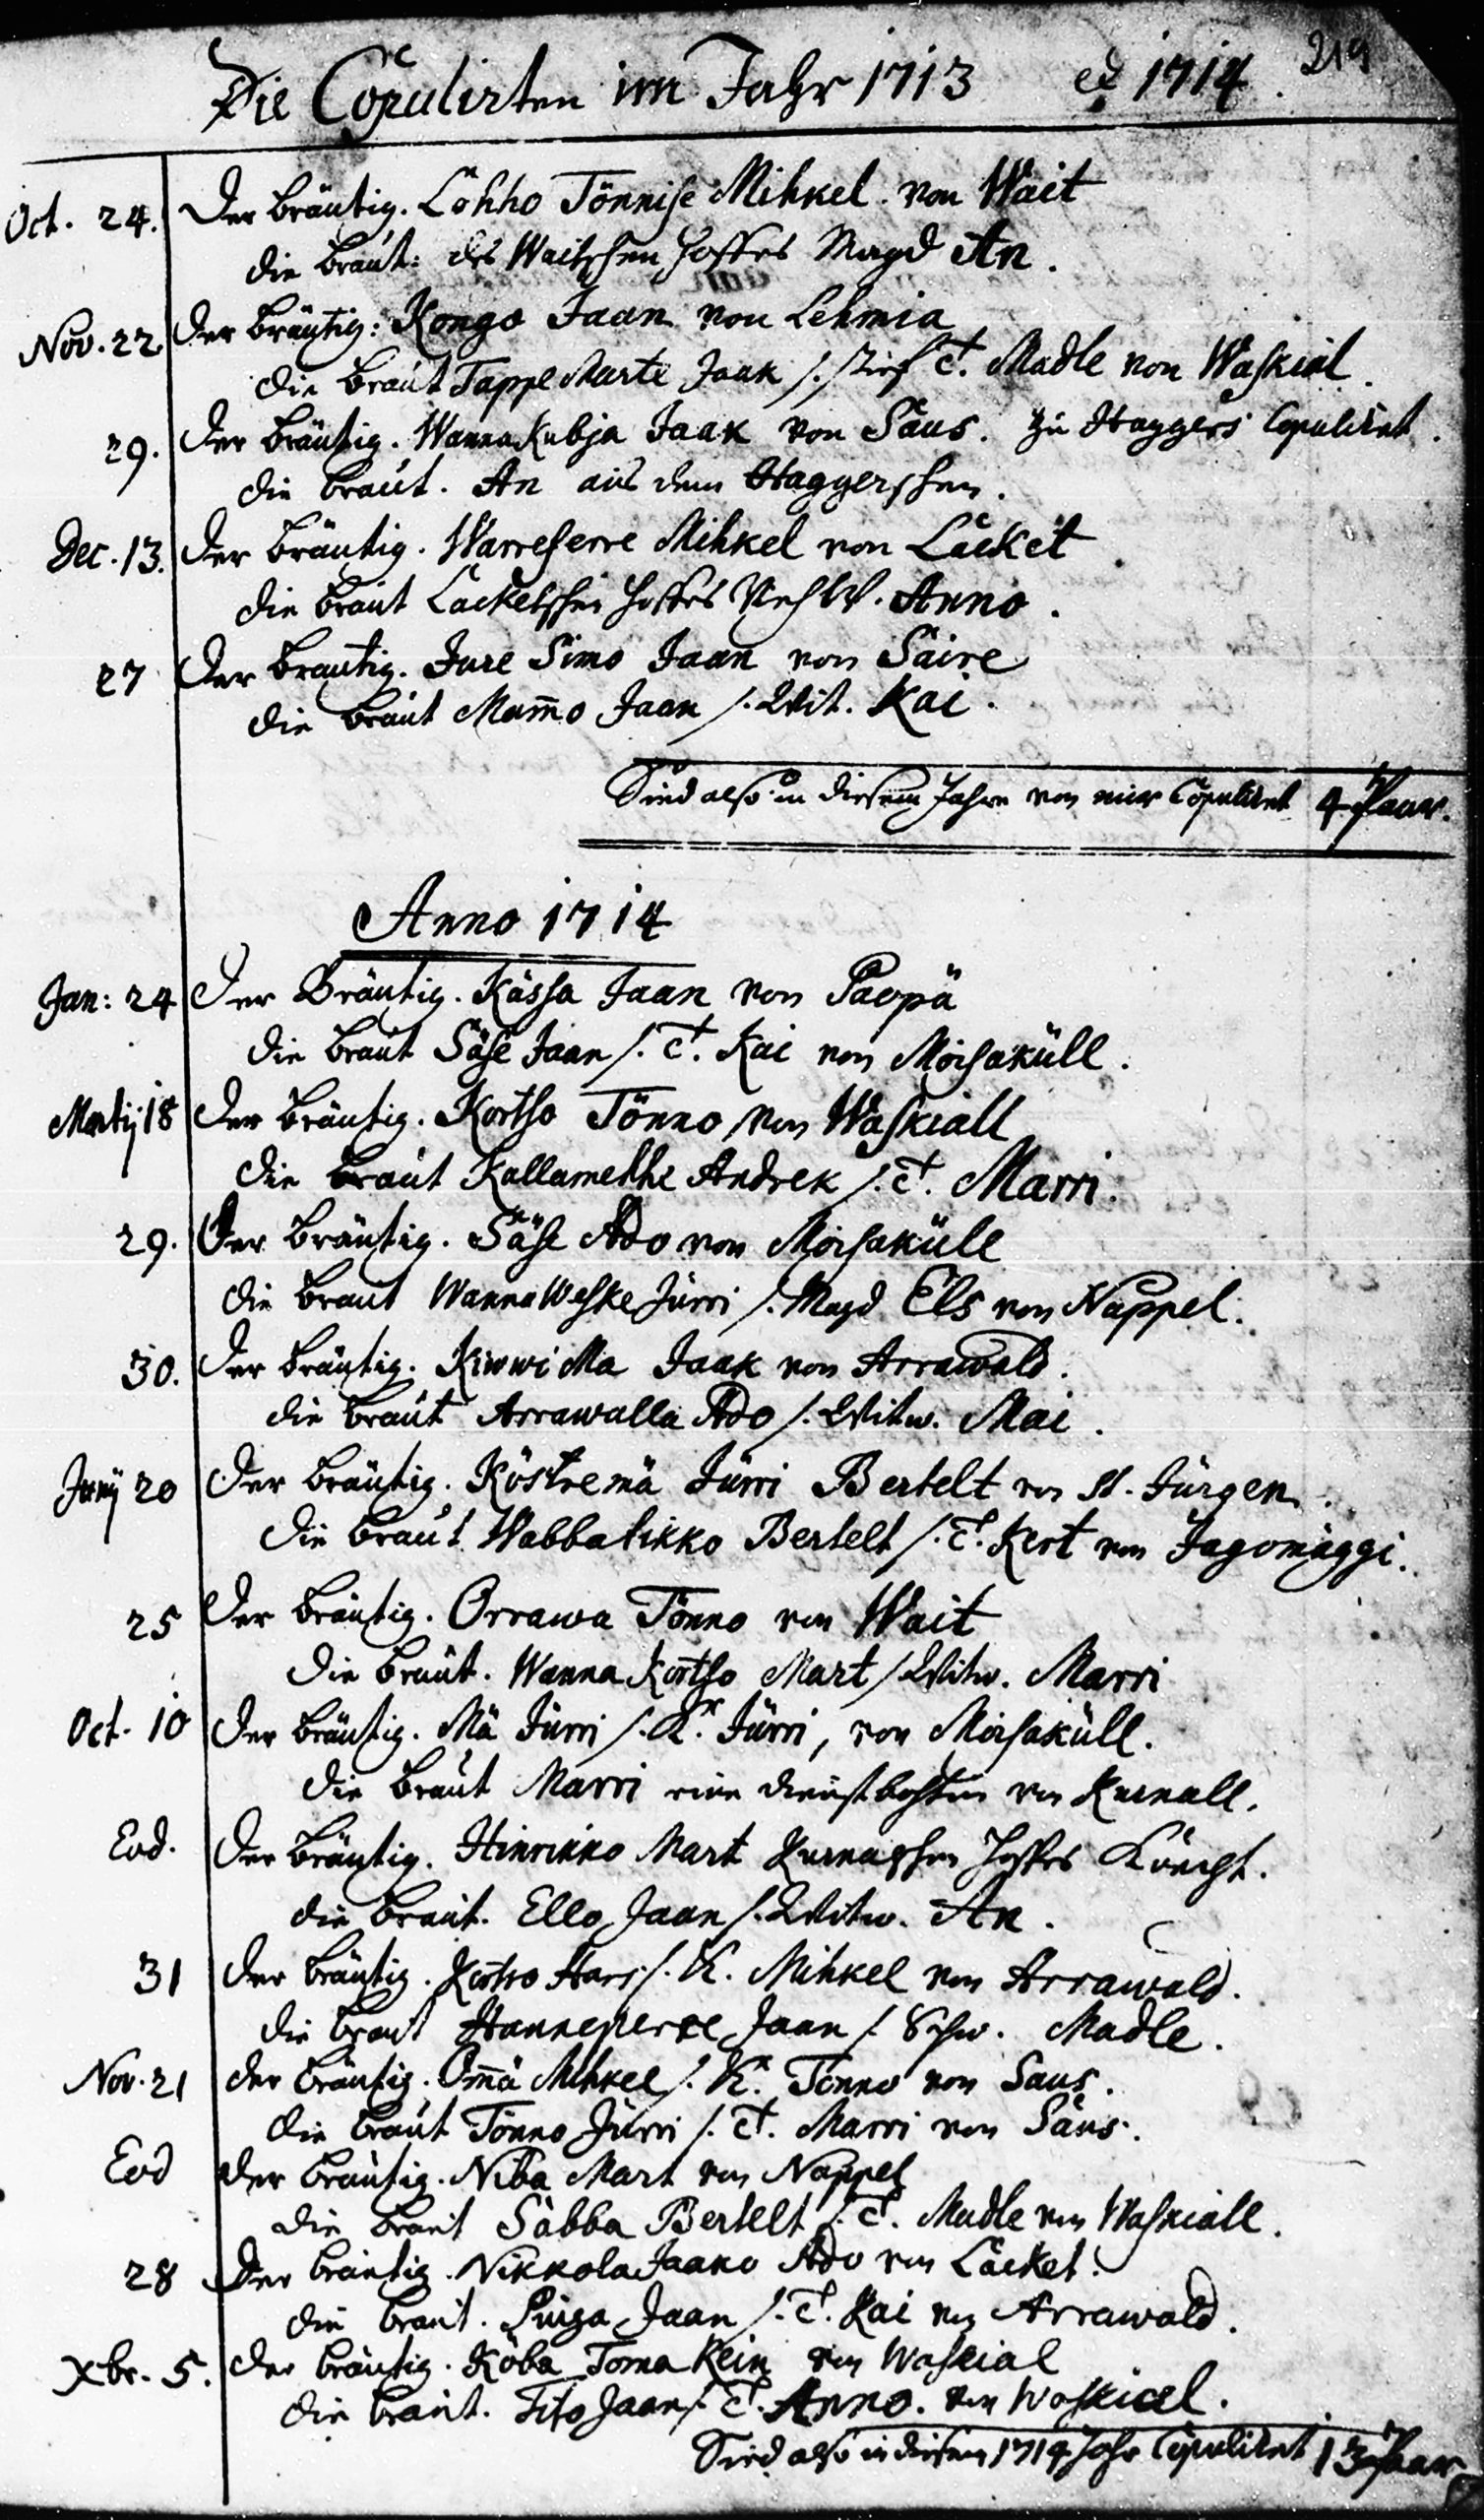 219
Die Copulirten im Jahr 1713 et 1714.
Oct. 24. Der Bräutig. Löhho Tönnise Mihkel. von Wait
die Braut: des Waitschen Hoffes Magd An.
Nov. 22. Der Bräutig: Kongo Jaan von Lehmia
die Braut Tappe Marte Jaak /. Stief T. Madle von Waskial.
29. Der Bräutig. Wanna Kubja Jaak von Saus. zu Haggers Copulirt.
die Braut. An aus dem Haggerschen.
Dec. 13. Der Bräutig. Warreserre Mihkel von Läcket
die Braut Lacketschen Hoffes Anno.
27 Der Bräutig. Jure Simo Jaan von Saire
die Braut Mam̄o Jaan /. Wit. Kai.
Sind also in diesem Jahre von mir Copulirt 4 Paar.
Anno 1714
Jan: 24 Der Bräutig. Kässa Jaan von Paopä
die Braut Säse Jaan /. T. Kai von Moisaküll.
Martij 18 Der Bräutig. Kortso Tönno von Waskiall
die Braut Kallamehhe Andrek /. T. Marri.
29. Der Bräutig. Säse Ado von Moisaküll
die Braut Wanna Weske Jürri /. Magd Els von Nappel.
30. Der Bräutig. Kiwwi Ma Jaak von Arrawald.
die Braut Arrawalla Ado /. Witw. Mai.
Junij 20 Der Bräutig. Köstremä Jürri Bertelt von St. Jürgen.
die Braut Wabbatikko Bertelt /. T. Kert von Jagomäggi.
25 Der Bräutig. Orrawa Tönno von Wait
die Braut. Wanna Kortso Mart / Witw. Marri
Oct. 10 Der Bräutig. Mä Jürri /. K. Jürri, von Moisaküll.
die Braut Marri eine dienstbohtin von Kurnall.
Eod. Der Bräutig. Hinrikko Mart Kurnaschen Hoffes Knecht.
die Braut. Ello Jaan /. Witw. An.
31 Der Bräutig. Kortso Hans /. K. Mihkel von Arrawald.
die Braut Hannepere Jaan /. Schw. Madle.
Nov. 21 der Bräutig. Om̄ä Mihkel /. K. Tönno von Saus.
die Braut Tönno Jürri /. T. Marri von Saus.
Eod der Bräutig. Niba Mart von Nappel
die Braut Säbba Bertelt /. T. Madle von Waskiall.
28 Der Bräutig. Nikkola Jaako Ado von Läcket.
die Braut. Puiga Jaan /. T. Kai von Arrawald.
Xbr. 5. der Bräutig. Köba Toma Rein von Waskial
die Braut. Tito Jaan /. T. Anno. von Waskial.
Sind also in diesem 1714 Jahr Copulirt 13 Paar.